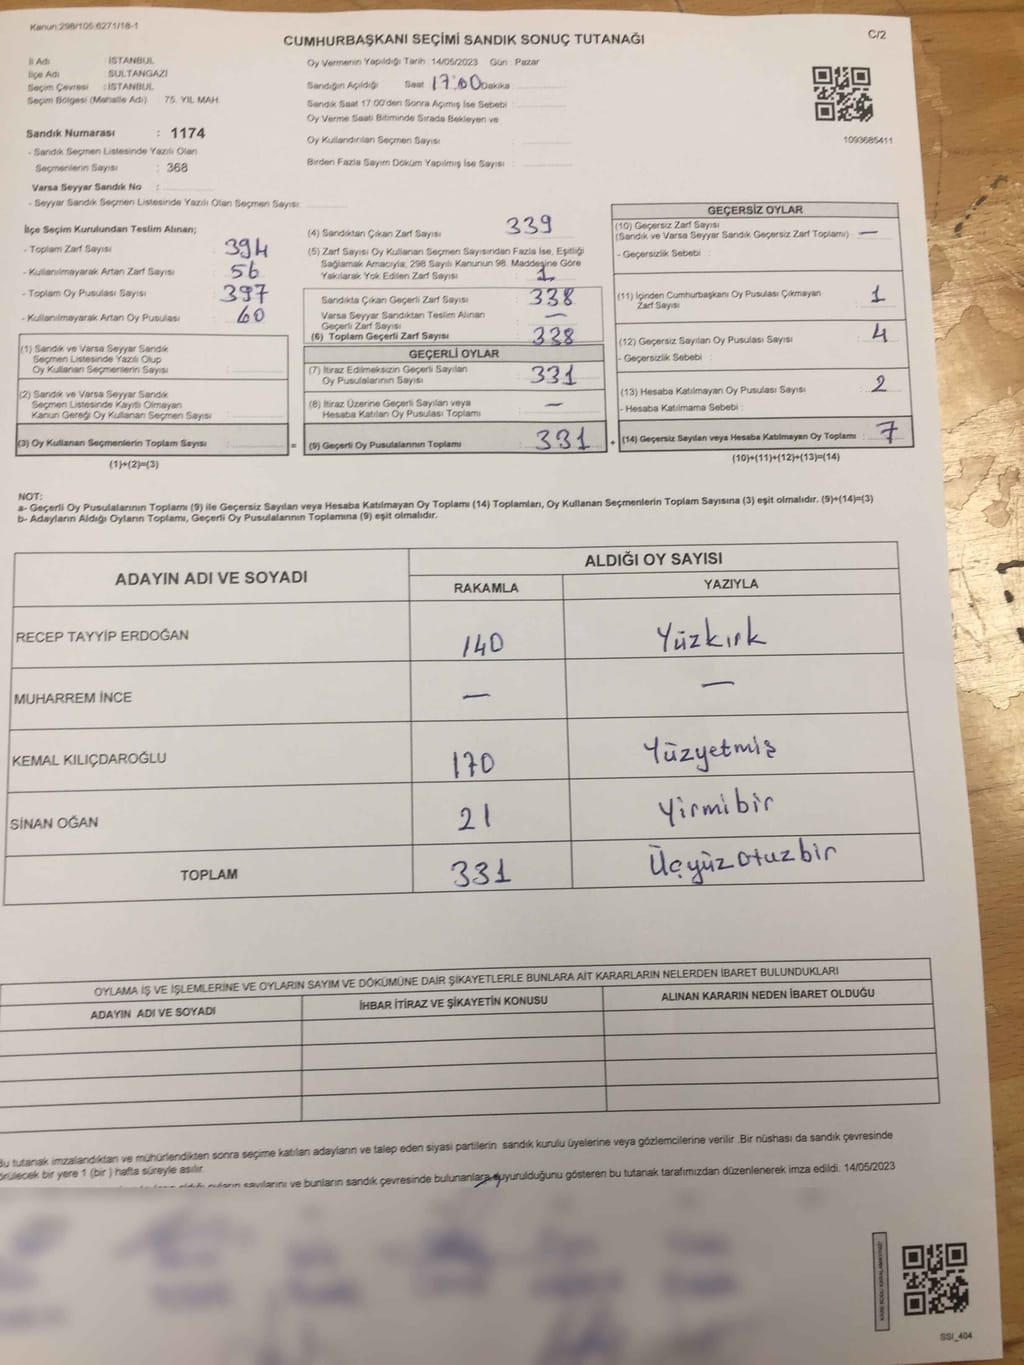 Kanun:298/105:6271/18-1
C/2
CUMHURBAŞKANI SEÇİMİ SANDIK SONUÇ TUTANAĞI
İl Adı : İSTANBUL
İlçe Adı : SULTANGAZİ
Seçim Çevresi : İSTANBUL
Seçim Bölgesi (Mahalle Adı) : 75. YIL MAH.
Sandık Numarası : 1174
- Sandık Seçmen Listesinde Yazılı Olan
Seçmenlerin Sayısı : 368
Varsa Seyyar Sandık No :
- Seyyar Sandık Seçmen Listesinde Yazılı Olan Seçmen Sayısı:
Oy Vermenin Yapıldığı Tarih :14/05/2023 Gün : Pazar
Sandığın Açıldığı Saat 17:00 Dakika
Sandık Saat 17:00'den Sonra Açımış İse Sebebi :
Oy Verme Saati Bitiminde Sırada Bekleyen ve
Oy Kullandırılan Seçmen Sayısı :
Birden Fazla Sayım Döküm Yapılmış İse Sayısı :
1093685411
İlçe Seçim Kurulundan Teslim Alınan;
- Toplam Zarf Sayısı : 394
- Kullanılmayarak Artan Zarf Sayısı : 56
- Toplam Oy Pusulası Sayısı : 397
- Kullanılmayarak Artan Oy Pusulası : 60
(1) Sandık ve Varsa Seyyar Sandık
Seçmen Listesinde Yazılı Olup
Oy Kullanan Seçmenlerin Sayısı :
(2) Sandık ve Varsa Seyyar Sandık
Seçmen Listesinde Kayıtlı Olmayan
Kanun Gereği Oy Kullanan Seçmen Sayısı :
(3) Oy Kullanan Seçmenlerin Toplam Sayısı : =
(1)+(2)=(3)
(4) Sandıktan Çıkan Zarf Sayısı : 339
(5) Zarf Sayısı Oy Kullanan Seçmen Sayısından Fazla İse, Eşitliği
Sağlamak Amacıyla; 298 Sayılı Kanunun 98. Maddesine Göre
Yakılarak Yok Edilen Zarf Sayısı : 1
Sandıkta Çıkan Geçerli Zarf Sayısı : 338
Varsa Seyyar Sandıktan Teslim Alınan
Geçerli Zarf Sayısı : —
(6) Toplam Geçerli Zarf Sayısı : 338
GEÇERLİ OYLAR
(7) İtiraz Edilmeksizin Geçerli Sayılan
Oy Pusulalarının Sayısı : 331
(8) İtiraz Üzerine Geçerli Sayılan veya
Hesaba Katılan Oy Pusulası Toplamı : —
(9) Geçerli Oy Pusulalarının Toplamı : 331 +
GEÇERSİZ OYLAR
(10) Geçersiz Zarf Sayısı
(Sandık ve Varsa Seyyar Sandık Geçersiz Zarf Toplamı) : —
- Geçersizlik Sebebi :
(11) İçinden Cumhurbaşkanı Oy Pusulası Çıkmayan
Zarf Sayısı : 1
(12) Geçersiz Sayılan Oy Pusulası Sayısı : 4
- Geçersizlik Sebebi :
(13) Hesaba Katılmayan Oy Pusulası Sayısı : 2
- Hesaba Katılmama Sebebi :
(14) Geçersiz Sayılan veya Hesaba Katılmayan Oy Toplamı : 7
(10)+(11)+(12)+(13)=(14)
NOT:
a- Geçerli Oy Pusulalarının Toplamı (9) ile Geçersiz Sayılan veya Hesaba Katılmayan Oy Toplamı (14) Toplamları, Oy Kullanan Seçmenlerin Toplam Sayısına (3) eşit olmalıdır. (9)+(14)=(3)
b- Adayların Aldığı Oyların Toplamı, Geçerli Oy Pusulalarının Toplamına (9) eşit olmalıdır.
ADAYIN ADI VE SOYADI
ALDIĞI OY SAYISI
RAKAMLA YAZIYLA
RECEP TAYYİP ERDOĞAN 140 Yüzkırk
MUHARREM İNCE — —
KEMAL KILIÇDAROĞLU 170 Yüzyetmiş
SİNAN OĞAN 21 Yirmibir
TOPLAM 331 Üçyüzotuzbir
OYLAMA İŞ VE İŞLEMLERİNE VE OYLARIN SAYIM VE DÖKÜMÜNE DAİR ŞİKAYETLERLE BUNLARA AİT KARARLARIN NELERDEN İBARET BULUNDUKLARI
ADAYIN ADI VE SOYADI İHBAR İTİRAZ VE ŞİKAYETİN KONUSU ALINAN KARARIN NEDEN İBARET OLDUĞU
Bu tutanak imzalandıktan ve mühürlendikten sonra seçime katılan adayların ve talep eden siyasi partilerin sandık kurulu üyelerine veya gözlemcilerine verilir .Bir nüshası da sandık çevresinde
görülecek bir yere 1 (bir ) hafta süreyle asılır.
aldığı oyların sayılarını ve bunların sandık çevresinde bulunanlara duyurulduğunu gösteren bu tutanak tarafımızdan düzenlenerek imza edildi. 14/05/2023
SSI_404